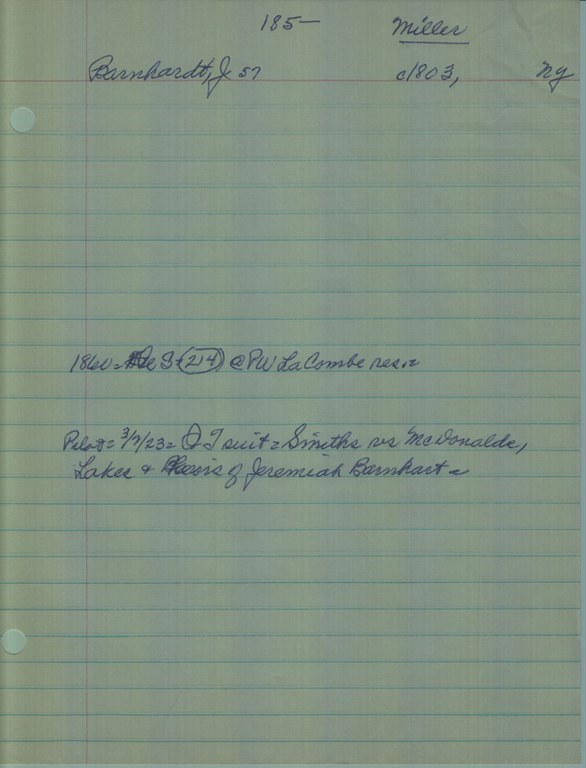 185— Miller
Barnhardt, J 57 c/803, NY
1860= De S (214) @ PW LaCombe res.=
Pilot= 3/7/23= QT suit= Smiths vs McDonalds,
Lakes & heirs of Jeremiah Barnhart=